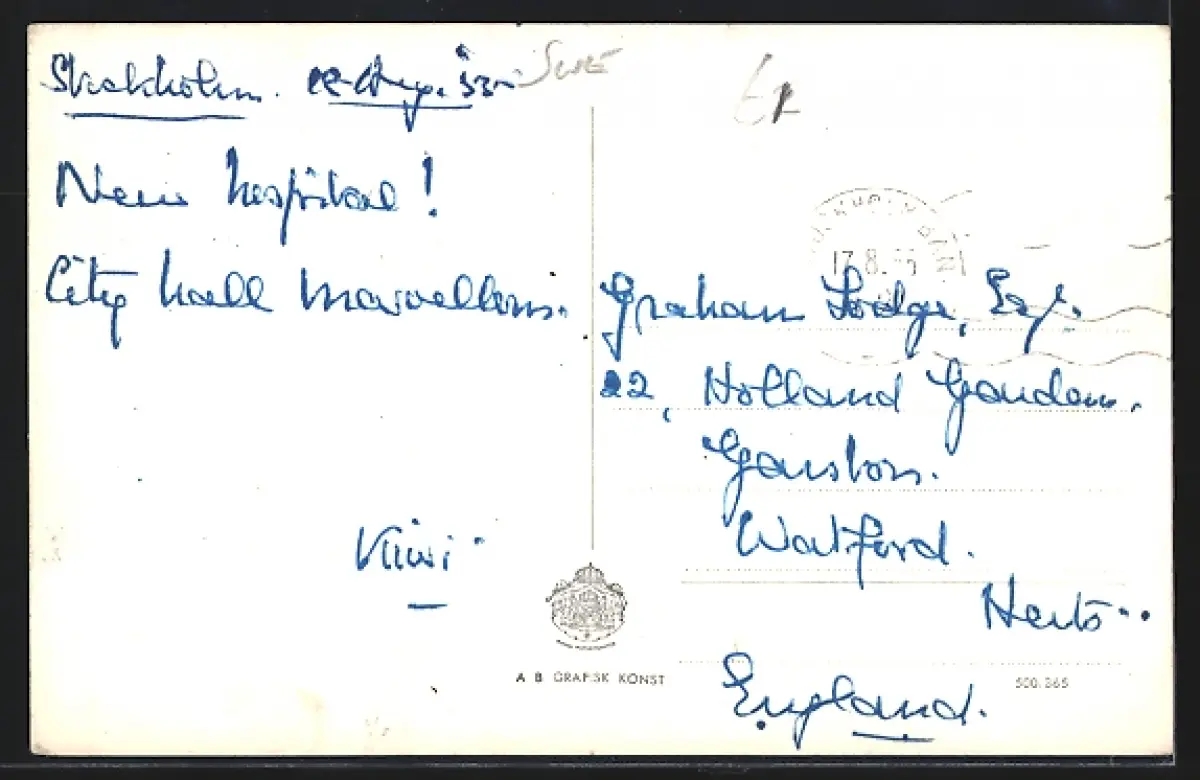 Stockholm.
Suè
New hospital!
City hall marvellous.
Kiwi.
17.8.
Graham Lodge, Esq.
22, Holland Gardens.
Garston.
Watford.
Herts..
England.
A B GRAFISK KONST
500.365